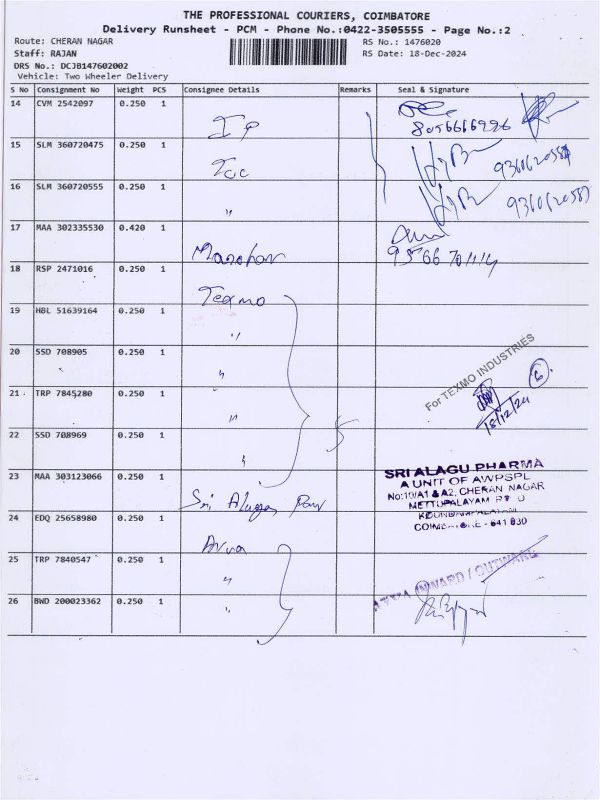 THE PROFESSIONAL COURIERS, COIMBATORE
Delivery Runsheet - PCM - Phone No.:0422-3505555 - Page No.:2
Route: CHERAN NAGAR RS No.: 1476020
Staff: RAJAN RS Date: 18-Dec-2024
DRS No.: DCJB147602002
Vehicle: Two Wheeler Delivery
S No Consignment No Weight PCS Consignee Details Remarks Seal & Signature
14 CVM 2542097 0.250 1
8056666996
15 SLM 360720475 0.250 1
16 SLM 360720555 0.250 1 "
17 MAA 302335530 0.420 1 Manohar
18 RSP 2471016 0.250 1 Texmo
19 HBL 51639164 0.250 1 "
20 SSD 708905 0.250 1 "
For TEXMO INDUSTRIES
6
21 TRP 7845280 0.250 1 "
18/12/24
22 SSD 708969 0.250 1 "
5
23 MAA 303123066 0.250 1 Sri Alagu
SRI ALAGU PHARMA
A UNIT OF AWPSPL
No:10/A1 & A2, CHERAN NAGAR
METTUPALAYAM
COIMBATORE - 641 030
24 EDQ 25658980 0.250 1
25 TRP 7840547 0.250 1 "
INWARD / OUTWARD
26 BWD 200023362 0.250 1 "